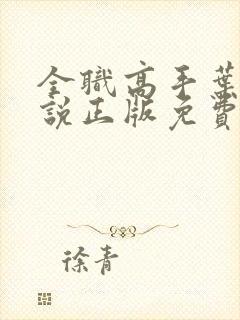 全職高手葉
說正版免費
徐青